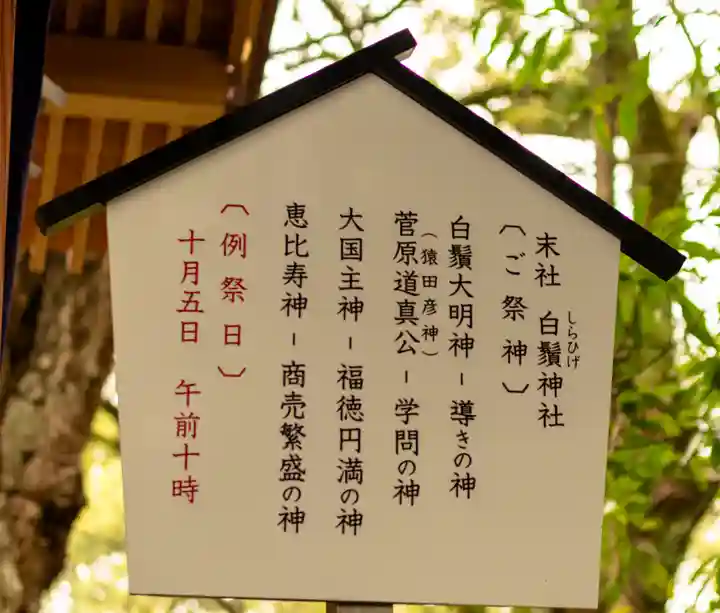 末社 白鬚神社
しらひげ
〔ご祭神〕
白鬚大明神－導きの神
（猿田彦神）
菅原道真公－学問の神
大国主神－福徳円満の神
恵比寿神－商売繁盛の神
〔例祭日〕
十月五日 午前十時